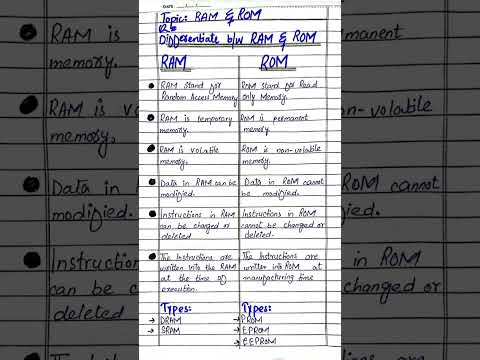 DATE
Topic: RAM & ROM
Differentiate b/w RAM & ROM
RAM
ROM
RAM stand for
Random Access Memory
ROM stand for Read
only Memory.
RAM is temporary
memory.
ROM is permanent
memory
RAM is volatile
memory.
ROM is non-volatile
memory.
Data in RAM can be
modified.
Data in ROM cannot
be modified.
Instructions in RAM
can be changed or
deleted
Instructions in ROM
cannot be changed or
deleted.
The Instructions are
written into the RAM
at the time of
execution.
The Instructions are
written into ROM at
manufacturing time
Types:
→ DRAM
→ SRAM
Types:
→ PROM
→ EPROM
→ EEPROM
RAM is
memory.
RAM is vola
memory.
Data in
modified.
Instruction
can be c
deleted
manent
n-volatile
ROM cannot
d.
in ROM
hanged or